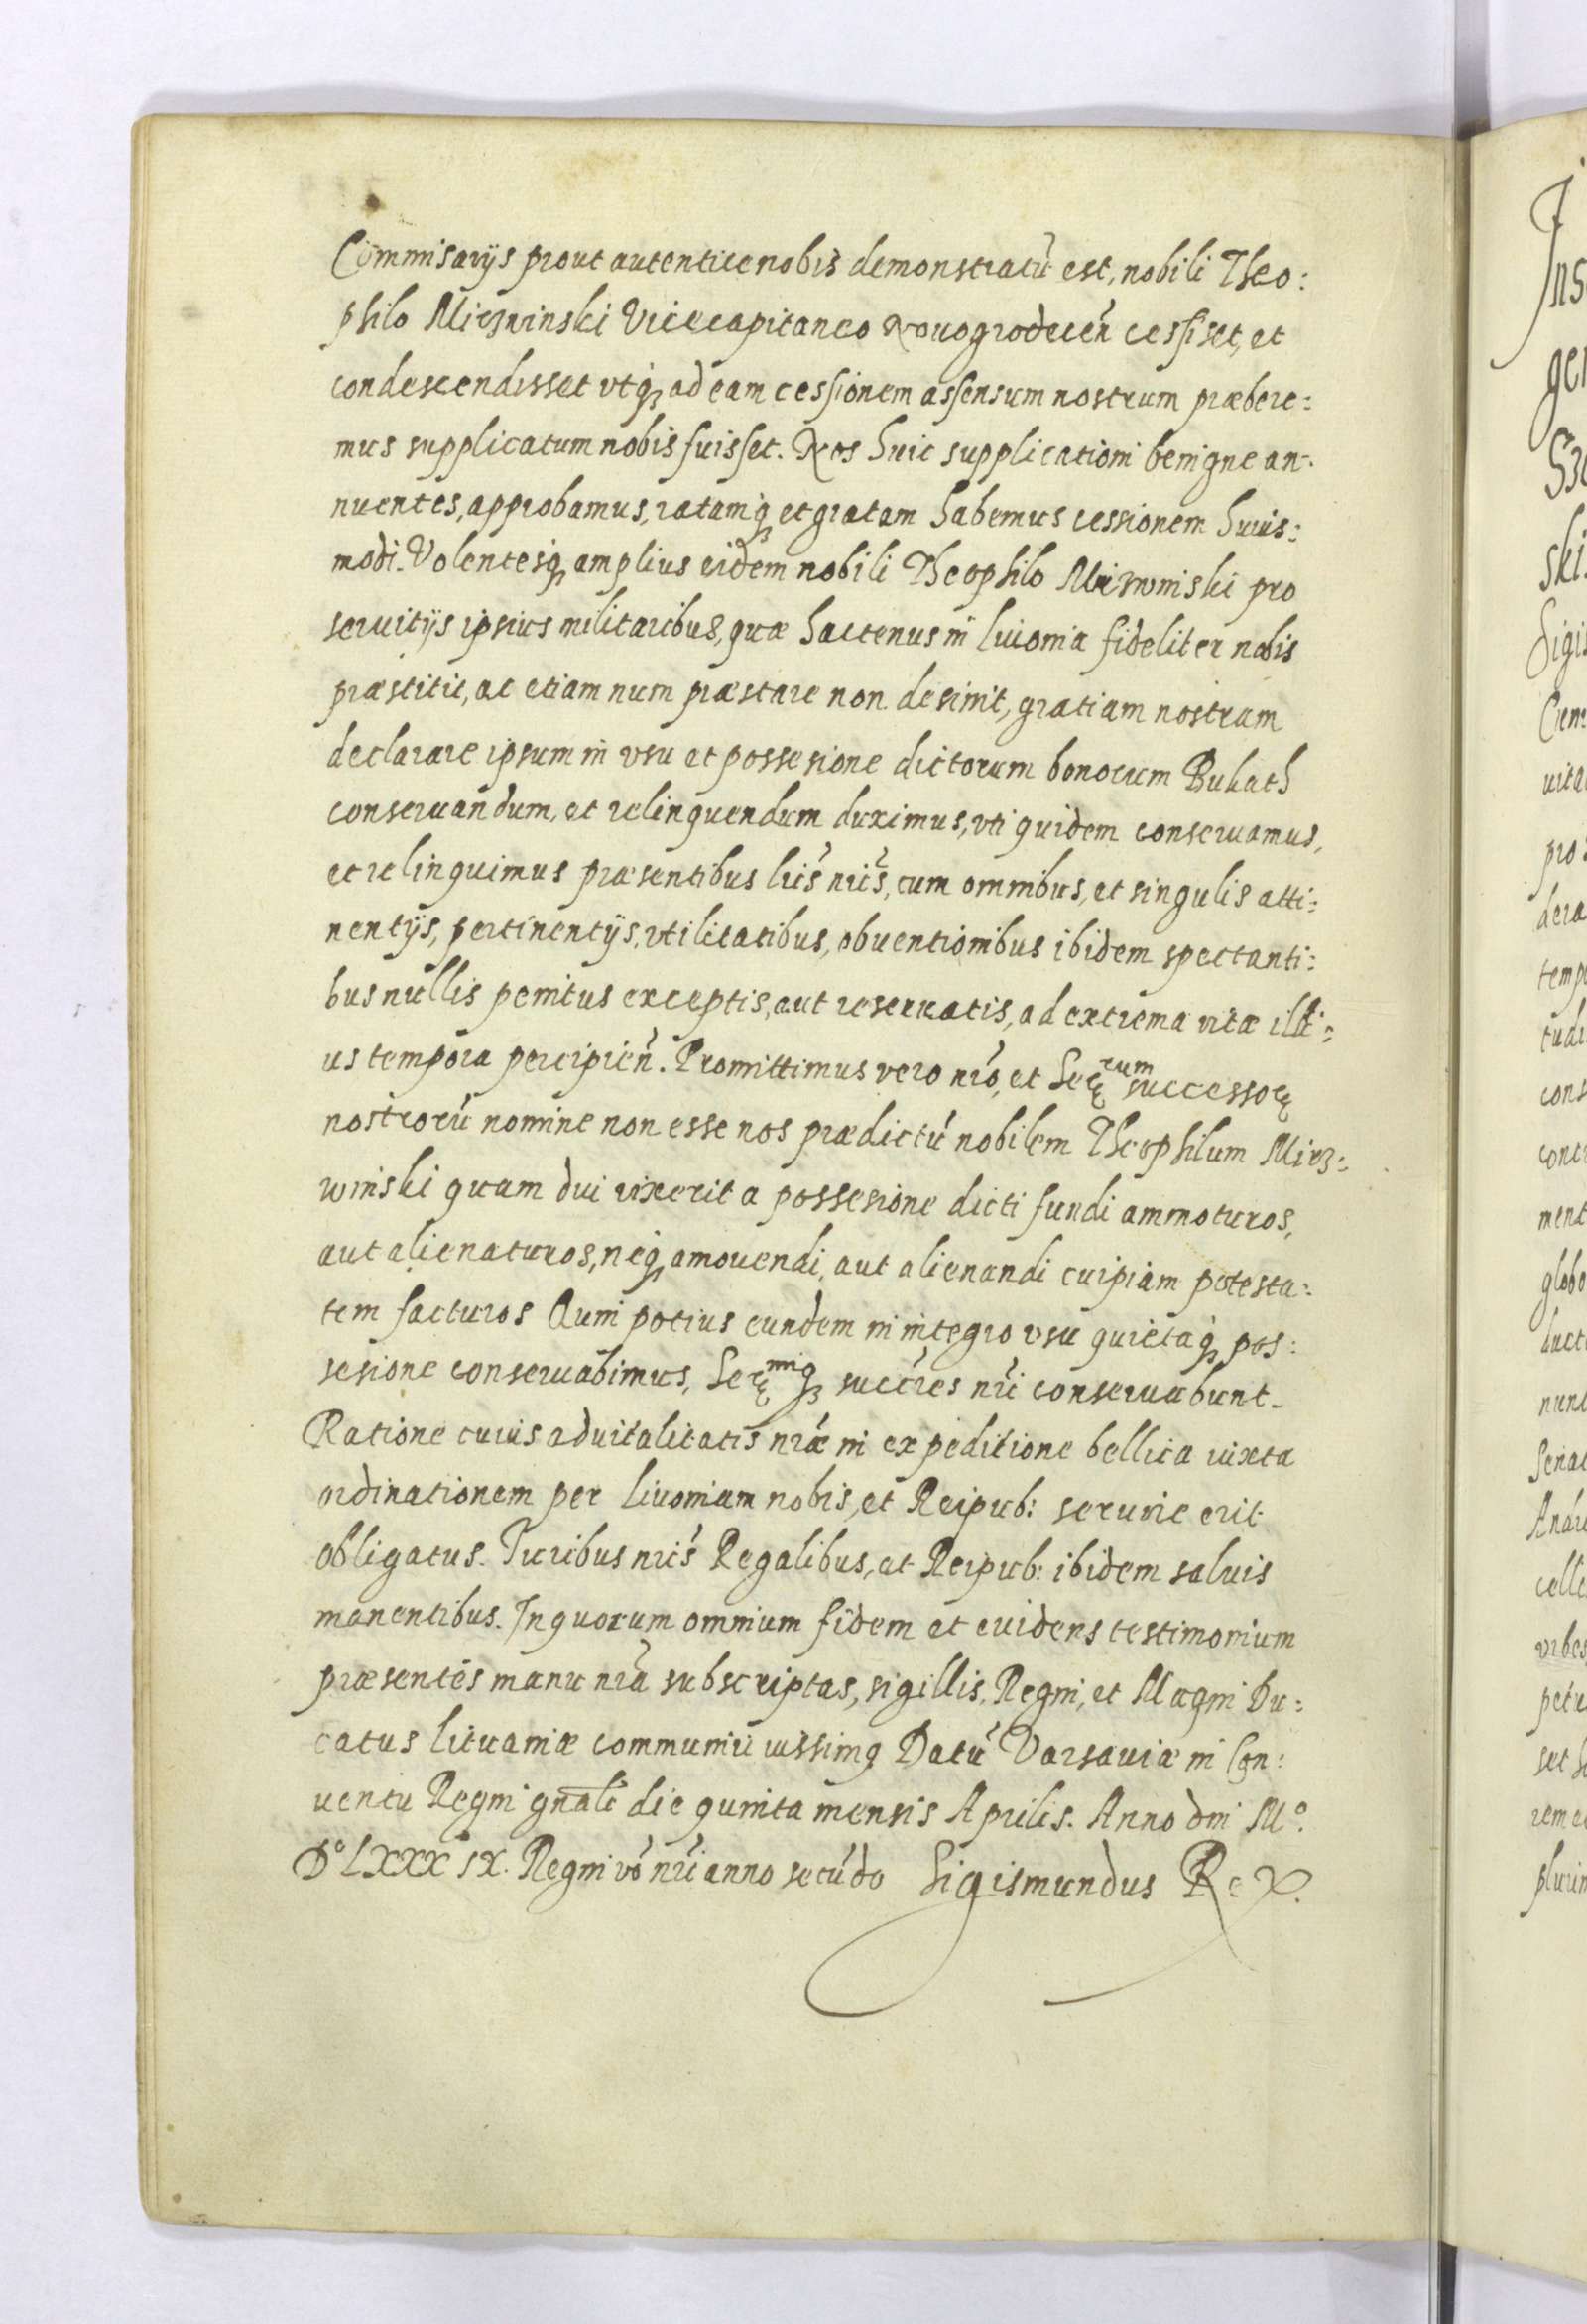 Commisarijs prout autentice nobis demonstratũ est, nobili Theo:
philo Mierzwinski Vicecapitaneo Nouogrodeceñ cessiset, et
condescendisset vtq₃ ad eam cessionem assensum nostrum præbere:
mus supplicatum nobis fuisset. Nos huic supplicationi benigne an:
nuentes, approbamus, ratamq₃ et gratam habemus cessionem huius:
modi. Volentesq₃ amplius eidem nobili Theophilo Mirzwinski pro
seruitijs ipsius militaribus, quæ hactenus in liuonia fideliter nobis
præstitit, ac etiam num præstare non desinit, gratiam nostram
declarare ipsum in vsu et possesione dictorum bonorum Bukath
conseruandum, et relinquendum duximus, vti quidem conseruamus,
et relinquimus præsentibus lrĩs nrĩs, cum omnibus, et singulis atti:
nentijs, pertinentijs, vtilitatibus, obuentionibus ibidem spectanti:
bus nullis penitus exceptis, aut reseruatis, ad extrema vitæ illi:
us tempora percipieñ. Promittimus vero nrõ, et Serᵉʳᵘᵐ successorę
nostrorũ nomine non esse nos prædictũ nobilem Theophilum Mirz:
winski quam dui vixerit a possesione dicti fundi ammoturos,
aut alienaturos, neq₃ amouendi, aut alienandi cuipiam potesta:
tem facturos Quin potius eundem in integro vsu quietaq₃ pos:
sesione conseruabimus, Serᵐⁱq₃ succẽres nrĩ conseruabunt.
Ratione cuius aduitalitatis nræ̃ in expeditione bellica iuxta
ordinationem per liuoniam nobis, et Reipub: seruire erit
obligatus. Iuribus nrĩs Regalibus, et Reipub: ibidem saluis
manentibus. In quorum omnium fidem et euidens testimonium
præsentes manu nrã subscriptas, sigillis, Regni, et Magni Du:
catus lituaniæ communiri iussimꝗ Datũ Varsauiæ in Con:
uentu Regni gñali die quinta mensis Aprilis. Anno dni M°.
D° LXXX IX. Regni võ nrĩ anno secũdo Sigismundus Rex.
Ins
ger
ski.
Sigis
uita
pro
dera
temp
tudi
cons
cont
ment
globo
nunt
Senat
celle
vrbes
petu
rem